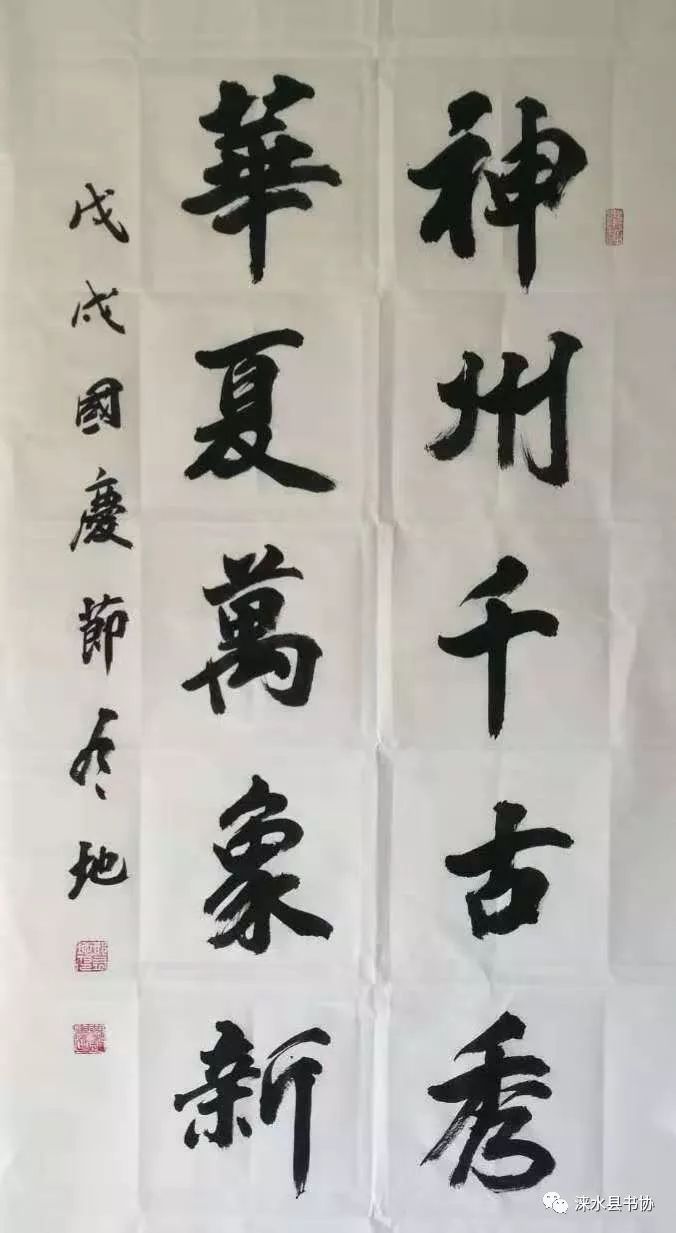 神州千古秀
華夏萬象新
戊戌國慶節冬地
涞水县书协